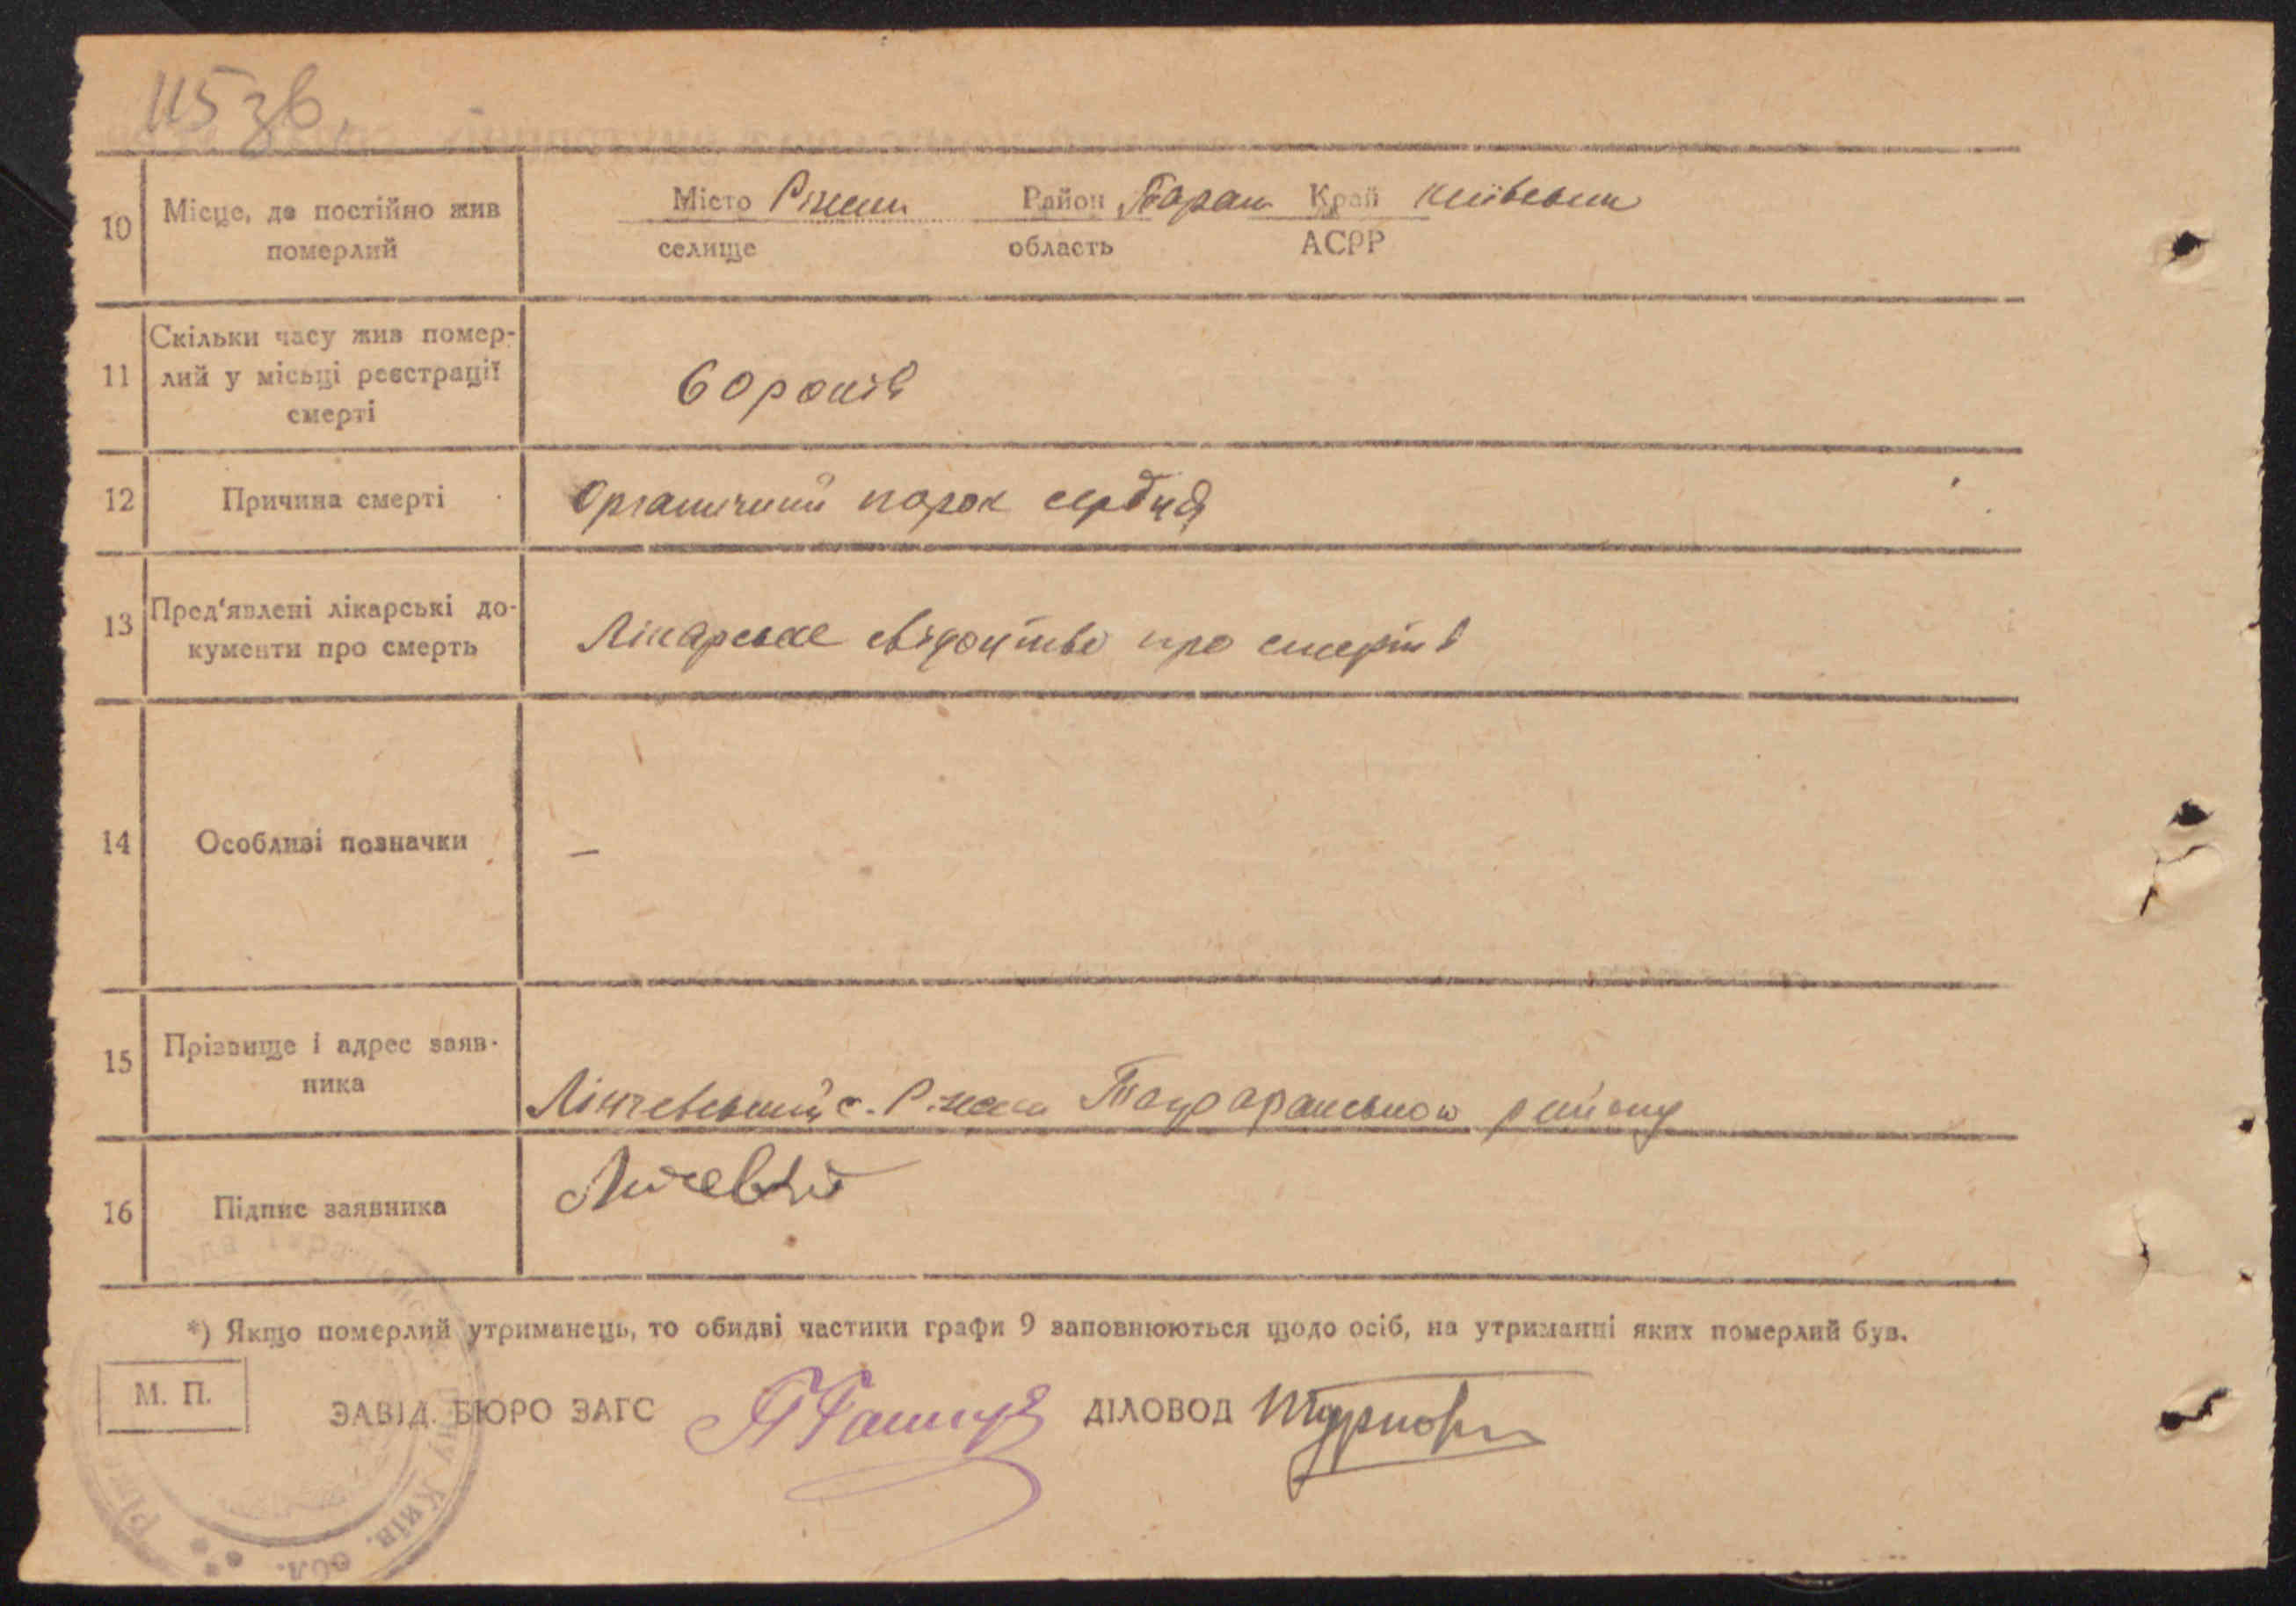 115 зв.
10 Місце, де постійно жив померлий
Місто Ріжки Район Таращ Край Київськ
селище область АСРР
11 Скільки часу жив помер-
лий у місьці реєстрації
смерті
60 років
12 Причина смерті Органичний порок сердця
13 Пред'явлені лікарські до-
кументи про смерть
Лікарське свідоцтво про смерть
14 Особливі позначки —
15 Прізвище і адрес заяв-
ника
с. Ріжки району
16 Підпис заявника
*) Якщо померлий утриманець, то обидві частини графи 9 заповнюються щодо осіб, на утриманні яких померлий був.
М. П.
ЗАВІД. БЮРО ЗАГС ДІЛОВОД
Київ. обл.